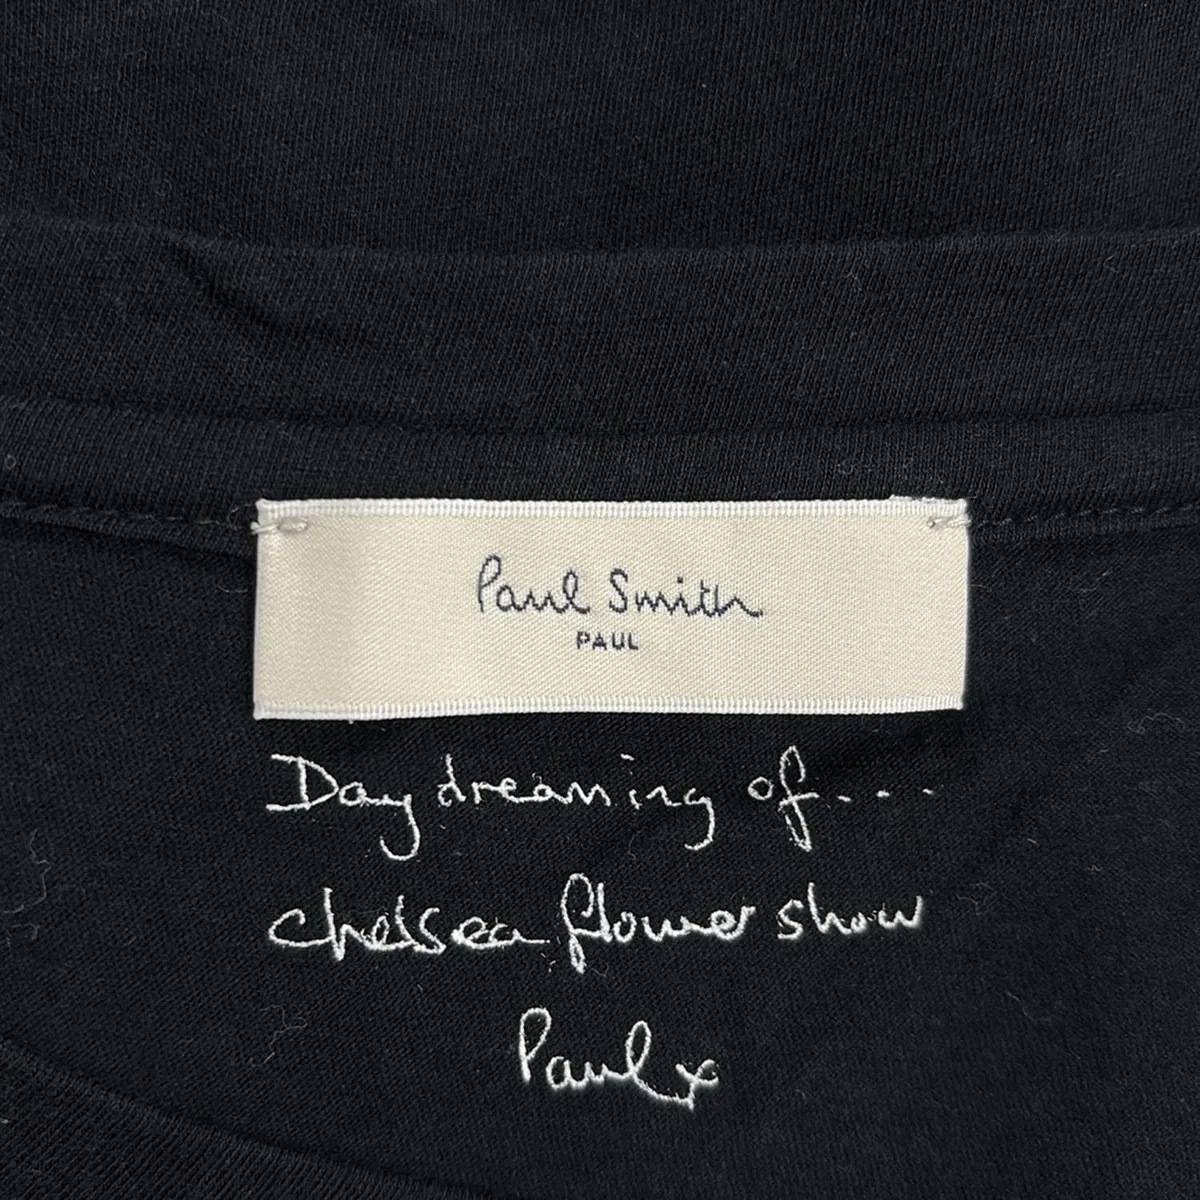 Paul Smith
PAUL
Daydreaming of....
chelsea flower show
Paul x